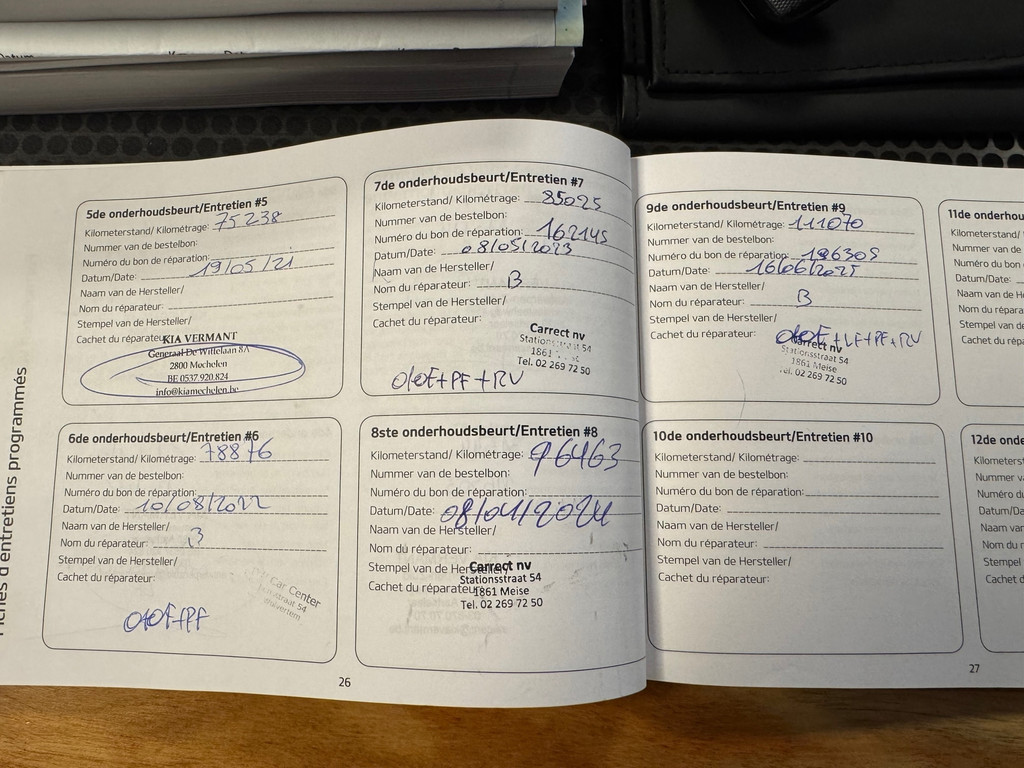 Datum
Fiches d'entretiens programmés
5de onderhoudsbeurt/Entretien #5
Kilometerstand/ Kilométrage: 75238
Nummer van de bestelbon:
Numéro du bon de réparation:
Datum/Date: 19/05/21
Naam van de Hersteller/
Nom du réparateur:
Stempel van de Hersteller/
Cachet du réparateur:
KIA VERMANT
Generaal De Wittelaan 8A
2800 Mechelen
BE 0537.920.824
info@kiamechelen.be
6de onderhoudsbeurt/Entretien #6
Kilometerstand/ Kilométrage: 78876
Nummer van de bestelbon:
Numéro du bon de réparation:
Datum/Date: 10/08/2022
Naam van de Hersteller/
Nom du réparateur: B
Stempel van de Hersteller/
Cachet du réparateur:
Car Center
straat 54
26
7de onderhoudsbeurt/Entretien #7
Kilometerstand/ Kilométrage: 85025
Nummer van de bestelbon:
Numéro du bon de réparation: 162145
Datum/Date: 08/05/2023
Naam van de Hersteller/
Nom du réparateur: B
Stempel van de Hersteller/
Cachet du réparateur:
Carrect nv
54
1861
Tel. 02 269 72 50
+PF+RV
8ste onderhoudsbeurt/Entretien #8
Kilometerstand/ Kilométrage: 96463
Nummer van de bestelbon:
Numéro du bon de réparation:
Datum/Date: 08/04/2024
Naam van de Hersteller/
Nom du réparateur:
Stempel van de Hersteller/
Cachet du réparateur:
Carrect nv
Stationsstraat 54
1861 Meise
Tel. 02 269 72 50
9de onderhoudsbeurt/Entretien #9
Kilometerstand/ Kilométrage: 111070
Nummer van de bestelbon:
Numéro du bon de réparation: 196305
Datum/Date: 16/06/2025
Naam van de Hersteller/
Nom du réparateur: B
Stempel van de Hersteller/
Cachet du réparateur: +LF+PF+RV
Carrect nv
Stationsstraat 54
1861 Meise
Tel. 02 269 72 50
10de onderhoudsbeurt/Entretien #10
Kilometerstand/ Kilométrage:
Nummer van de bestelbon:
Numéro du bon de réparation:
Datum/Date:
Naam van de Hersteller/
Nom du réparateur:
Stempel van de Hersteller/
Cachet du réparateur:
11de onderhou
Kilometerstand/
Nummer van de
Numéro du bon
Datum/Date:
Naam van de H
Nom du répara
Stempel van de
Cachet du répa
12de onder
Kilometerst
Nummer va
Numéro du
Datum/Da
Naam van
Nom du r
Stempel
Cachet d
27